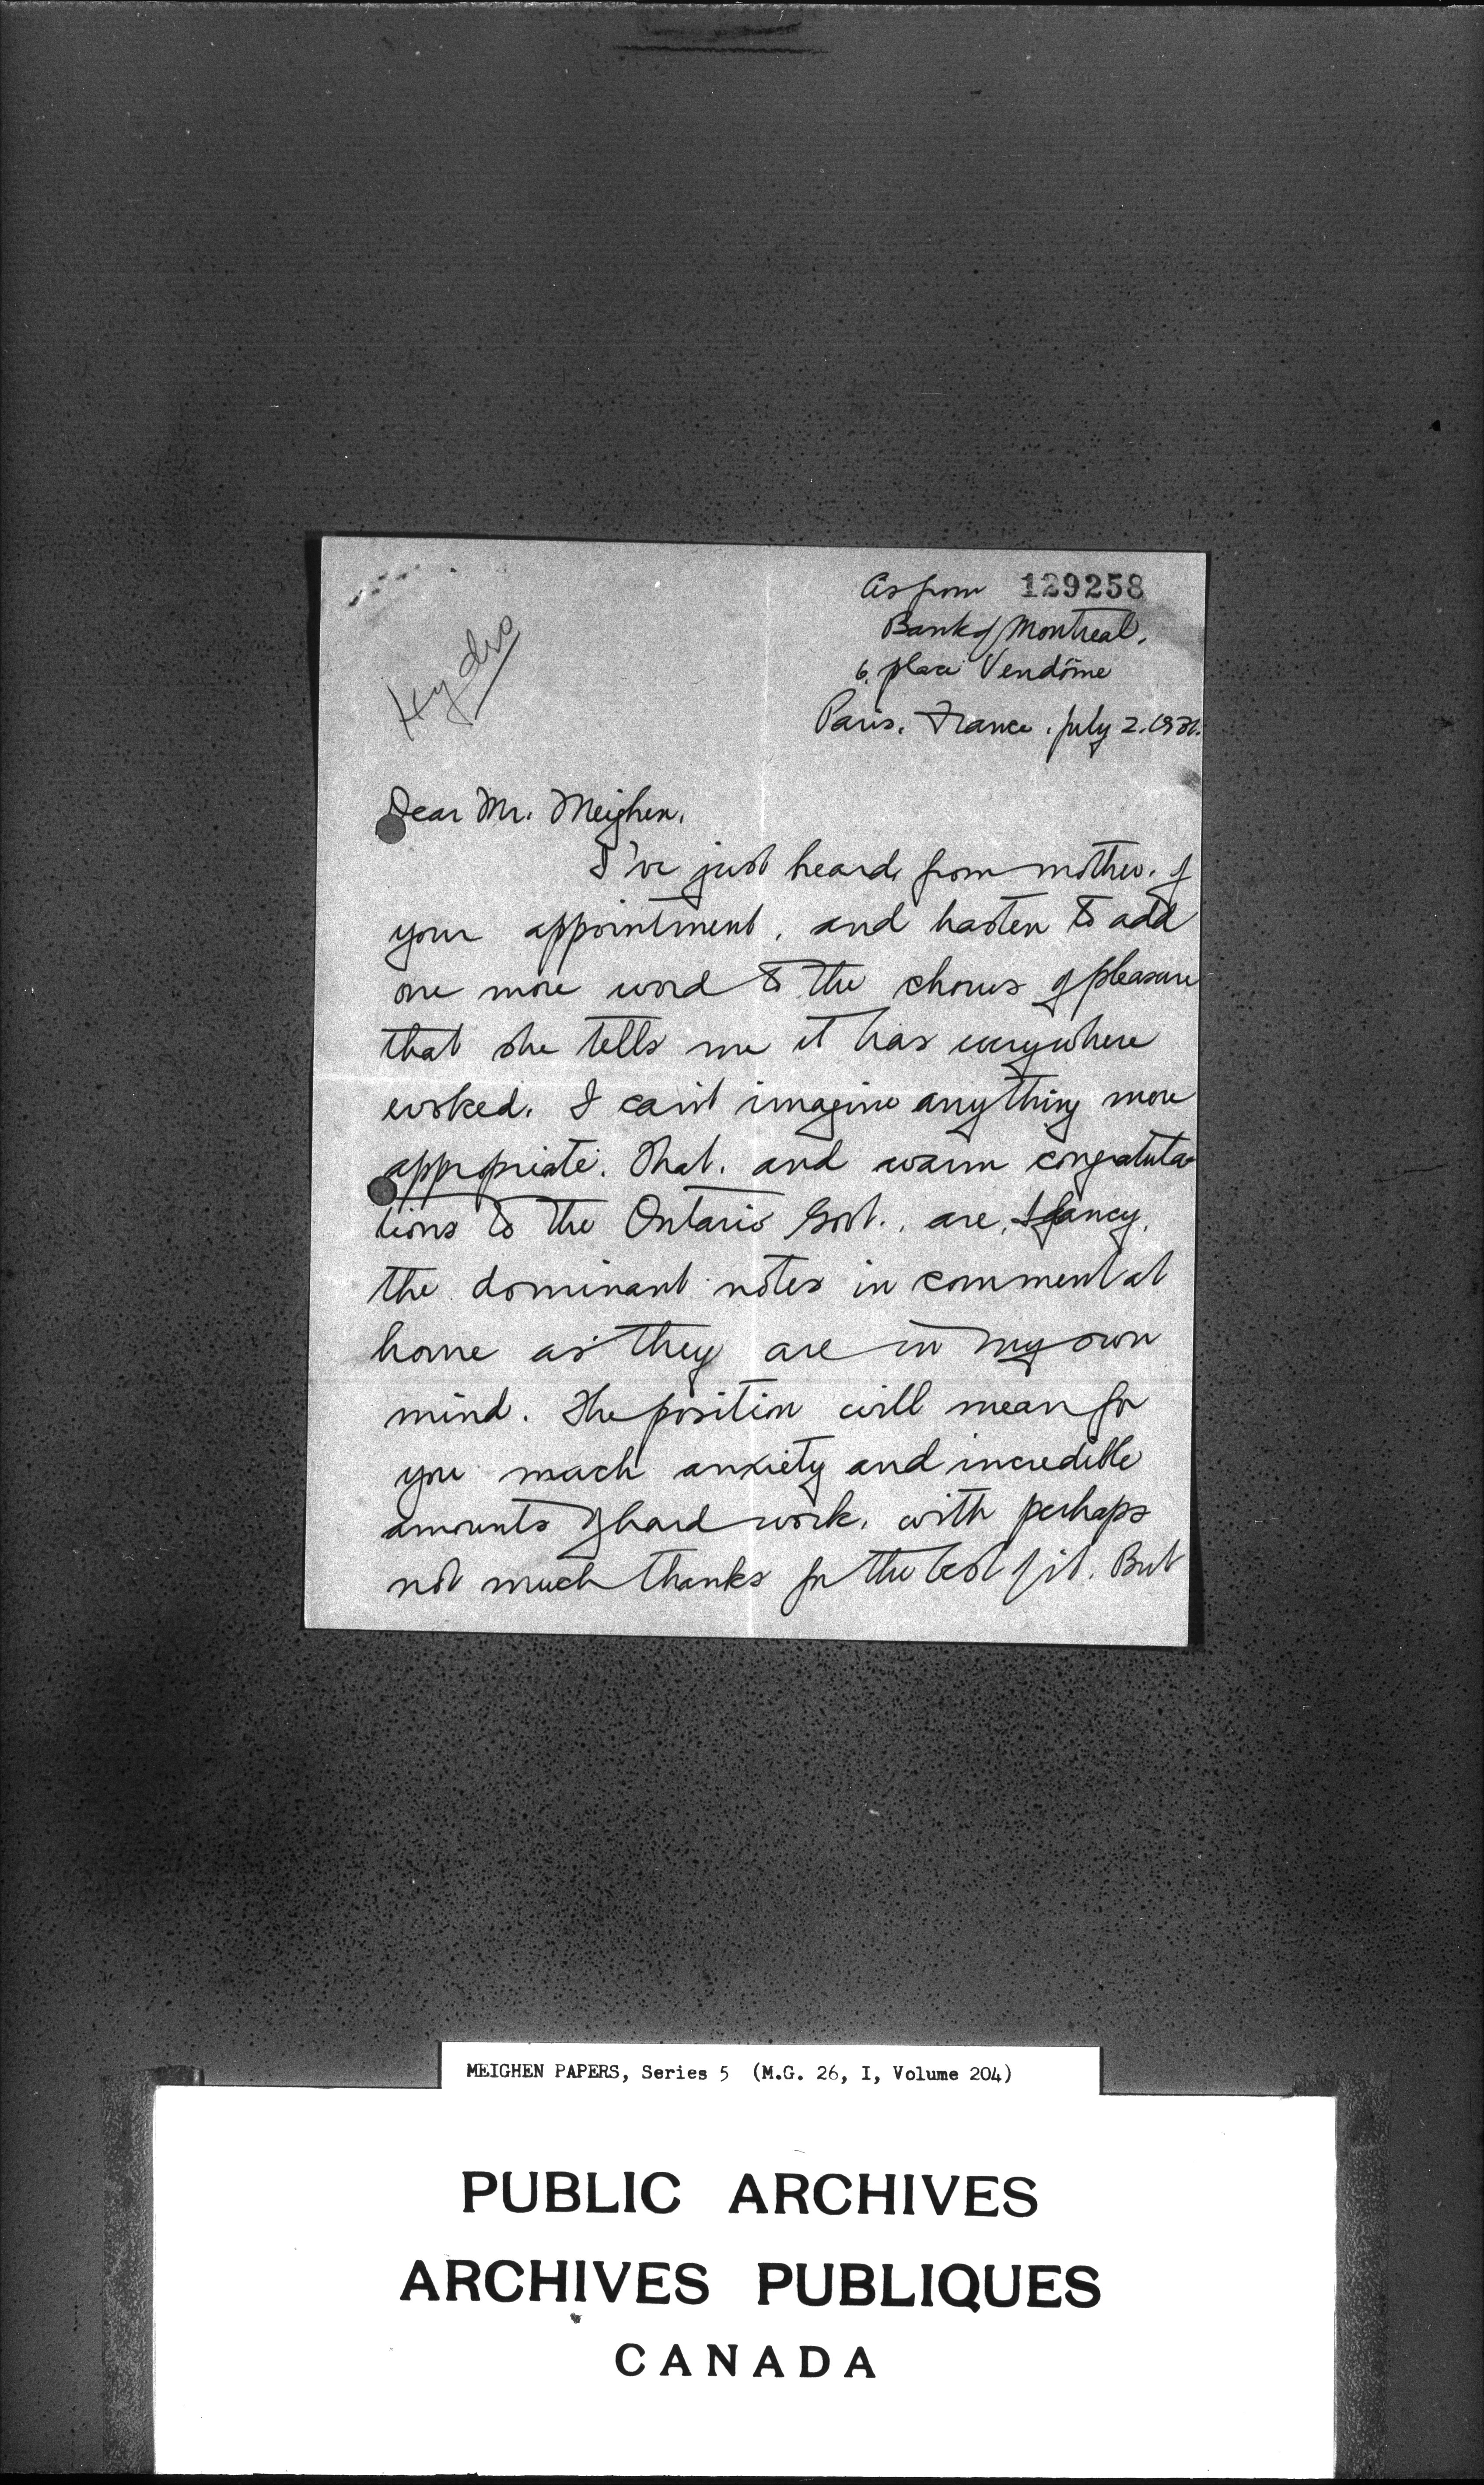 As from 129258
Bank of Montreal,
6, place Vendôme
Paris. France. July 2. 1931.
Hydro
Dear Mr. Meighen,
I've just heard, from mother, of
your appointment, and hasten to add
one more word to the chorus of pleasure
that she tells me it has everywhere
evoked. I can't imagine anything more
appropriate. That, and warm congratula-
tions to the Ontario Govt., are, I fancy,
the dominant notes in comment at
home as they are in my own
mind. The position will mean for
you much anxiety and incredible
amounts of hard work, with perhaps
not much thanks for the best of it. But
MEIGHEN PAPERS, Series 5 (M.G. 26, I, Volume 204)
PUBLIC ARCHIVES
ARCHIVES PUBLIQUES
CANADA